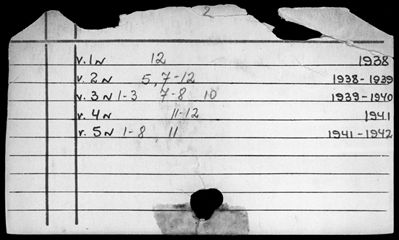 2
v.1N 12 1938
v. 2N 5, 7-12 1938-1939
v. 3N 1-3 7-8 10 1939-1940
v. 4N 11-12 1941
v. 5N 1-8, 11 1941-1942